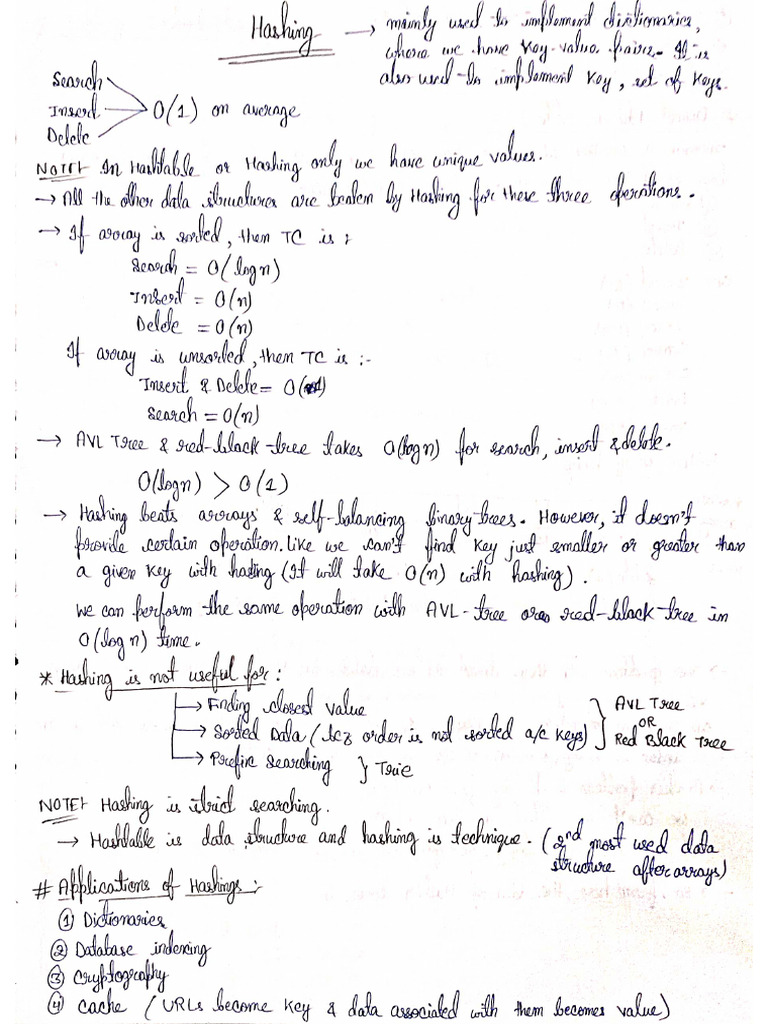 Hashing → mainly used to implement dictionaries,
where we have key-value pairs. It is
also used to implement key, set of keys.
Search
Insert
Delete
O(1) on average
NOTE:- In Hashtable or Hashing only we have unique values.
→ All the other data structures are beaten by Hashing for these three operations.
→ If array is sorted, then TC is :
Search = O(log n)
Insert = O(n)
Delete = O(n)
If array is unsorted, then TC is :-
Insert & Delete = O(1)
Search = O(n)
→ AVL Tree & red-black-tree takes O(log n) for search, insert & delete.
O(log n) > O(1)
→ Hashing beats arrays & self-balancing binary trees. However, it doesn't
provide certain operation. Like we can't find key just smaller or greater than
a given key with hashing (It will take O(n) with hashing).
We can perform the same operation with AVL-tree or red-black-tree in
O(log n) time.
* Hashing is not useful for :
→ Finding closest value
→ Sorted Data (bcz order is not sorted a/c keys)
} AVL Tree
OR
Red Black Tree
→ Prefix Searching } Trie
NOTE:- Hashing is strict searching.
→ Hashtable is data structure and hashing is technique. (2nd most used data
structure after arrays)
# Applications of Hashings :-
① Dictionaries
② Database indexing
③ Cryptography
④ Cache (URLs become key & data associated with them becomes value)